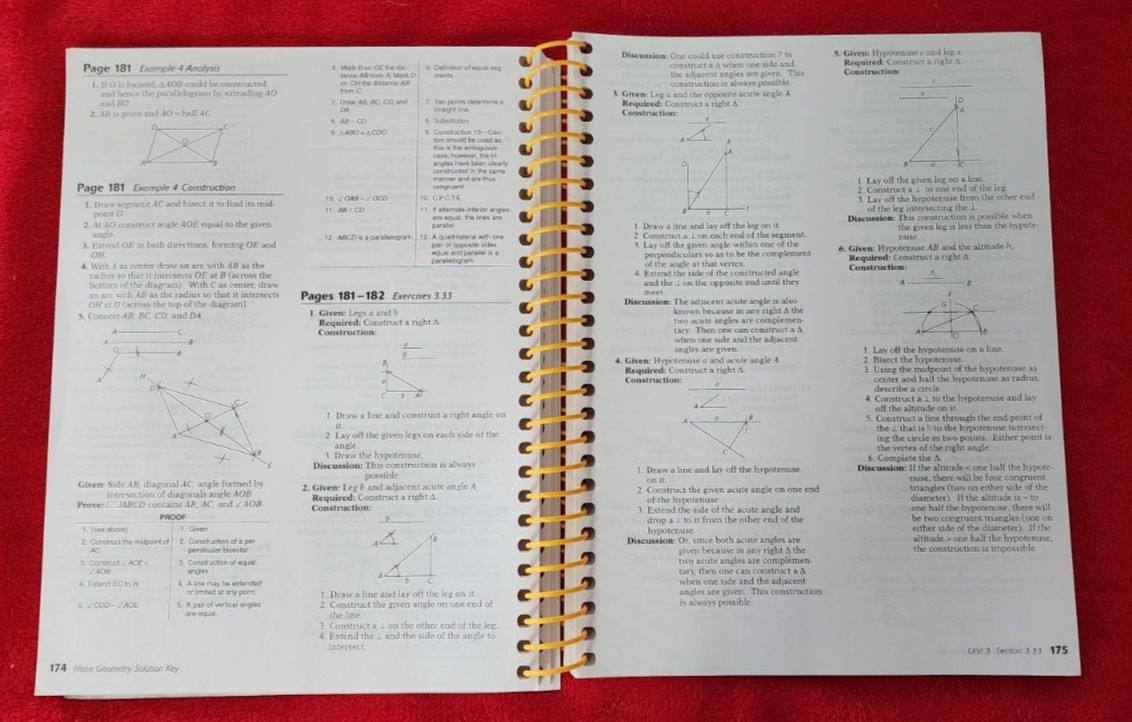 Page 181 Example 4 Analysis
1. If O is located, △AOB could be constructed
and hence the parallelogram by extending AO
and BO
2. AB is given and AO = half AC
D C
O
A B
Page 181 Example 4 Construction
1. Draw segment AC and bisect it to find its mid-
point O
2. At AO construct angle AOE equal to the given
angle.
3. Extend OE in both directions, forming OE and
OH.
4. With A as center draw an arc with AB as the
radius so that it intersects OE at B (across the
bottom of the diagram). With C as center, draw
an arc with AB as the radius so that it intersects
OH at D (across the top of the diagram).
5. Connect AB, BC, CD, and DA.
A C
A B
O B
A
H
D
C
O
A
B
E
Given: Side AB, diagonal AC, angle formed by
intersection of diagonals angle AOB
Prove: ▱ABCD contains AB, AC, and ∠AOB.
PROOF
1. (see above)
1. Given
2. Construct the midpoint of
AC
2. Construction of a per-
pendicular bisector
3. Construct ∠AOE =
∠AOB
3. Construction of equal
angles
4. Extend EO to H
4. A line may be extended
or limited at any point.
5. ∠COD = ∠AOE
5. A pair of vertical angles
are equal.
174 Plane Geometry Solution Key
6. Mark B on OE the dis-
tance AB from A; Mark D
on OH the distance AB
from C
6. Definition of equal seg-
ments
7. Draw AB, BC, CD, and
DA.
7. Two points determine a
straight line.
8. AB = CD
8. Substitution
9. △ABO ≅ △CDO
9. Construction 15—Cau-
tion should be used as
this is the ambiguous
case; however, the tri-
angles have been clearly
constructed in the same
manner and are thus
congruent.
10. ∠OAB = ∠OCD
10. C.P.C.T.E.
11. AB ∥ CD
11. If alternate interior angles
are equal, the lines are
parallel.
12. ABCD is a parallelogram
12. A quadrilateral with one
pair of opposite sides
equal and parallel is a
parallelogram.
Pages 181–182 Exercises 3.33
1. Given: Legs a and b
Required: Construct a right △.
Construction:
a
b
B
a
C b A
1. Draw a line and construct a right angle on
it.
2. Lay off the given legs on each side of the
angle.
3. Draw the hypotenuse.
Discussion: This construction is always
possible.
2. Given: Leg b and adjacent acute angle A
Required: Construct a right △.
Construction:
b
A
B
A b C
1. Draw a line and lay off the leg on it.
2. Construct the given angle on one end of
the line.
3. Construct a ⊥ on the other end of the leg.
4. Extend the ⊥ and the side of the angle to
intersect.
Discussion: One could use construction 7 to
construct a △ when one side and
the adjacent angles are given. This
construction is always possible.
3. Given: Leg a and the opposite acute angle A
Required: Construct a right △.
Construction:
a
A
E
A
D
B a C
1. Draw a line and lay off the leg on it.
2. Construct a ⊥ on each end of the segment.
3. Lay off the given angle within one of the
perpendiculars so as to be the complement
of the angle at that vertex.
4. Extend the side of the constructed angle
and the ⊥ on the opposite end until they
meet.
Discussion: The adjacent acute angle is also
known because in any right △ the
two acute angles are complemen-
tary. Then one can construct a △
when one side and the adjacent
angles are given.
4. Given: Hypotenuse a and acute angle A
Required: Construct a right △.
Construction:
a
A
A a B
C
1. Draw a line and lay off the hypotenuse
on it.
2. Construct the given acute angle on one end
of the hypotenuse.
3. Extend the side of the acute angle and
drop a ⊥ to it from the other end of the
hypotenuse.
Discussion: Or, since both acute angles are
given because in any right △ the
two acute angles are complemen-
tary, then one can construct a △
when one side and the adjacent
angles are given. This construction
is always possible.
5. Given: Hypotenuse c and leg a
Required: Construct a right △.
Construction:
c
a
D
A
c
B a C
1. Lay off the given leg on a line.
2. Construct a ⊥ to one end of the leg.
3. Lay off the hypotenuse from the other end
of the leg intersecting the ⊥.
Discussion: This construction is possible when
the given leg is less than the hypote-
nuse.
6. Given: Hypotenuse AB and the altitude h.
Required: Construct a right △.
Construction:
h
A B
F
G C
A O B
1. Lay off the hypotenuse on a line.
2. Bisect the hypotenuse.
3. Using the midpoint of the hypotenuse as
center and half the hypotenuse as radius,
describe a circle.
4. Construct a ⊥ to the hypotenuse and lay
off the altitude on it.
5. Construct a line through the end point of
the ⊥ that is ∥ to the hypotenuse intersect-
ing the circle in two points. Either point is
the vertex of the right angle.
6. Complete the △.
Discussion: If the altitude < one half the hypote-
nuse, there will be four congruent
triangles (two on either side of the
diameter). If the altitude is = to
one half the hypotenuse, there will
be two congruent triangles (one on
either side of the diameter). If the
altitude > one half the hypotenuse,
the construction is impossible.
Unit 3 Section 3.33 175